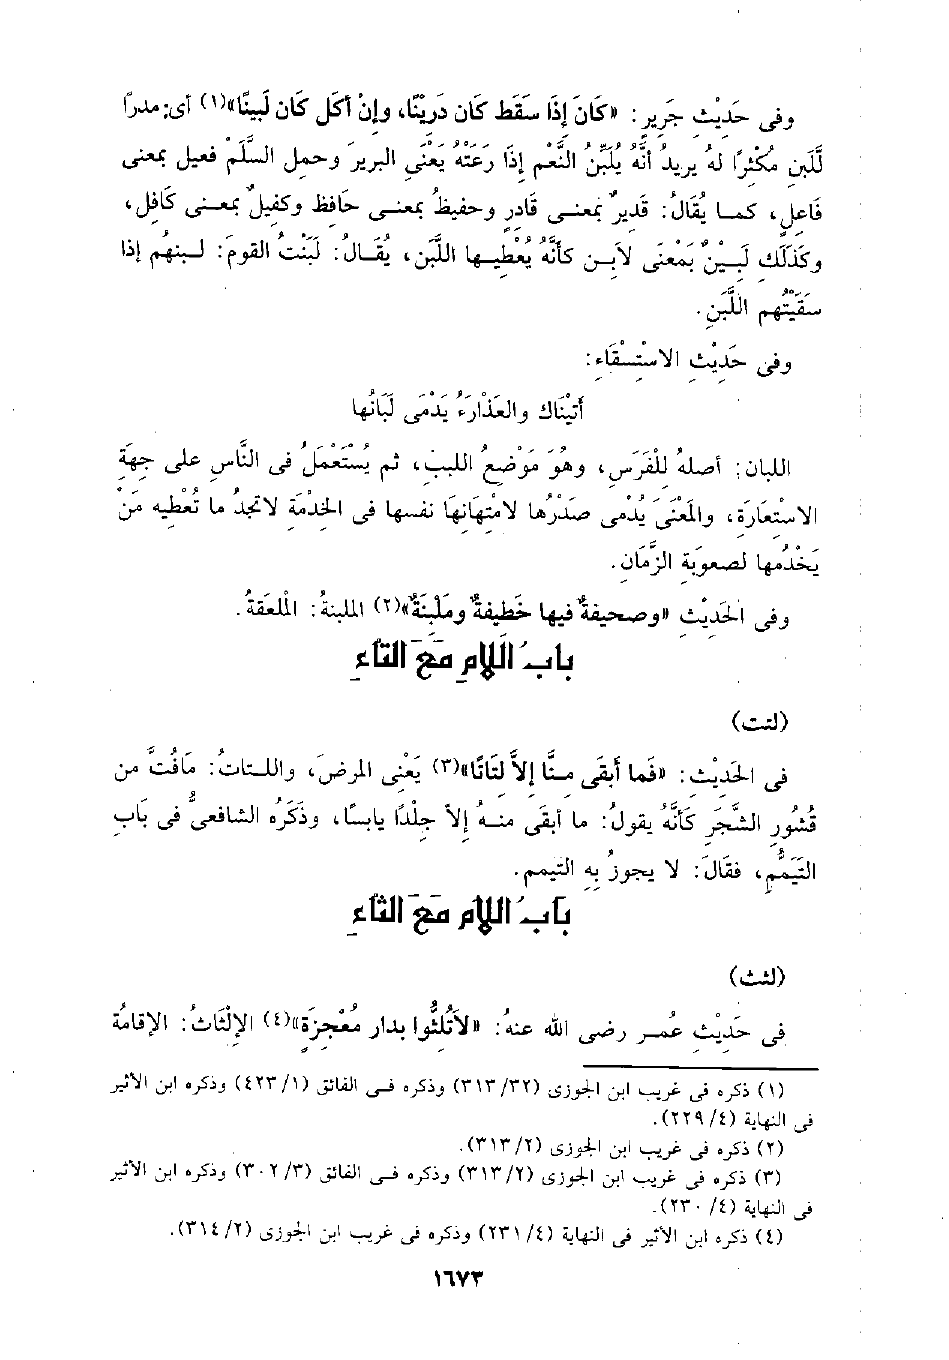 وفى حَدِيْثِ جَرِيرٍ: «كَانَ إِذَا سَقَط كَان دَرِينًا، وإنْ أكَل كَان لَبِينًا»(١) أى: مدرًا
للَّبنِ مكْثِرًا لهُ يريدُ أنَّهُ يُلَبِّنُ النَّعْم إذَا رَعَتْهُ يَعْنَي البريرَ وحمل السَّلَم فعيل بمعنى
فَاعلٍ، كمـا يُقَالُ: قَديرٌ بمعنـى قَادرٍ وحفيظٌ بمعنـى حَافِظ وكفيلٌ بمعنـى كَافل،
وكَذَلَك لَبـيْنٌ بمَعْنَى لابـن كأنَّهُ يُعْطيـها اللَّبَن، يقـالُ: لَبَنْتُ القومَ: لـبنهُم إذَا
سقَيْتُهم اللَّبَنِ.
وفى حَدِيْثِ الاسْتِسْقَاءِ:
أتَيْنَاك والعَذْارَءُ يَدْمَى لَبَانُها
اللبان: أصلهُ لِلْفَرَسِ، وهُوَ مَوْضِعُ اللببِ، ثم يُسْتَعْمَلُ فى النَّاسِ على جِهةِ
الاسْتعَارَةِ، والمَعْنَى يُدْمْى صَدْرُها لامْتِهَانِهَا نفسها فى الخِدْمَةِ لاتجدُ ما تُعْطِيه مَنْ
يَخْدُمها لصعوبَةِ الزَّمَانِ.
وفى الحَدِيْثِ «وصحيفةٌ فيها خَطيفةٌ ومَلْبنَةٌ»(٢) الملبنةُ: الْملعَقةُ.
بابُ اللامِ مَعَ التاَءِ
(لتت)
فى الحَدِيْثِ: «فَما أبقَى منَّا إلاَّ لتَاتًا»(٣) يَعْنِى المرضَ، واللتاتُ: مَافُتَّ من
قُشُورِ الشَّجَرِ كَأنَّهُ يقولُ: ما أبقَى منـهُ إلاَّ جِلْدًا يابسًا، وذكَرُه الشافعىُّ فى بَابِ
التَيَمُّمِ، فقَالَ: لا يجوزُ بِهِ التيمم.
بابُ اللامِ مَعَ الثاَءِ
(لثث)
فى حَدِيْثِ عُمـر رضى الله عنهُ: «لاَتُلثُّوا بدار مُعْجزَة»(٤) الإلْثَاثُ: الإقامةُ
(١) ذكره فى غريب ابن الجوزى (٣١٣/٣٢) وذكره فـى الفائق (٤٢٣/١) وذكره ابن الأثير
فى النهاية (٢٢٩/٤).
(٢) ذكره فى غريب ابن الجوزى (٣١٣/٢).
(٣) ذكره فى غريب ابن الجوزى (٣١٣/٢) وذكره فـى الفائق (٣٠٢/٣) وذكره ابن الأثير
فى النهاية (٢٣٠/٤).
(٤) ذكره ابن الأثير فى النهاية (٢٣١/٤) وذكره فى غريب ابن الجوزى (٣١٤/٢).
١٦٧٣